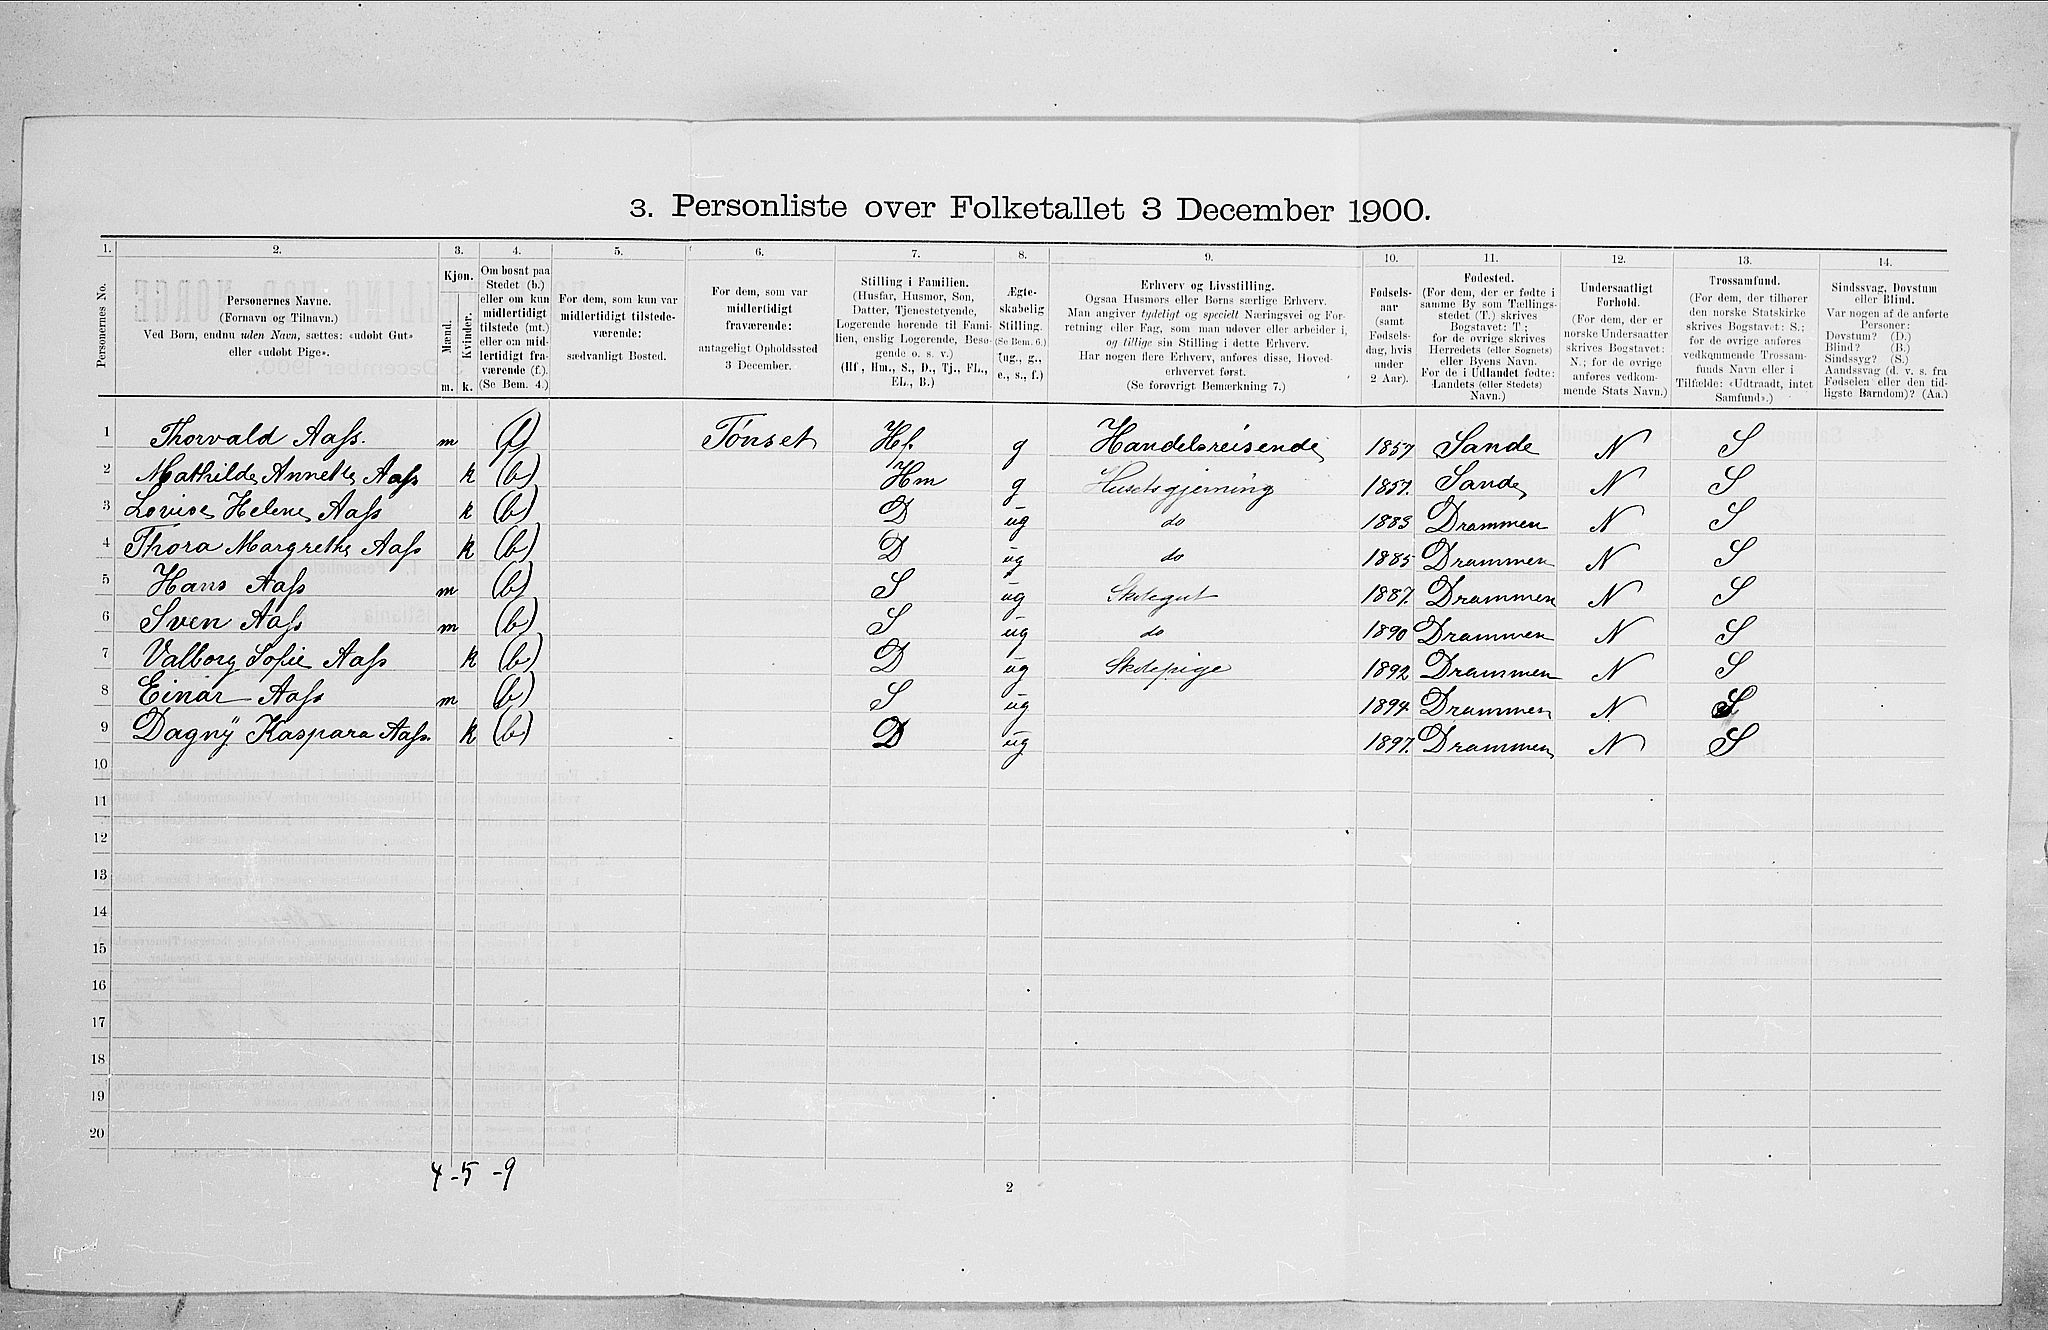 3. Personliste over Folketallet 3 December 1900.
1. 2. 3. 4. 5. 6. 7. 8. 9. 10. 11. 12. 13. 14.
Personernes No.
Personernes Navne.
(Fornavn og Tilnavn.)
Ved Børn, endnu uden Navn, sættes: «udøbt Gut»
eller «udøbt Pige».
Kjøn.
Mænd.
Kvinder.
m. k.
Om bosat paa
Stedet (b.)
eller om kun
midlertidigt
tilstede (mt.)
eller om mid-
lertidigt fra-
værende (f.).
(Se Bem. 4.)
For dem, som kun var
midlertidigt tilstede-
værende:
sædvanligt Bosted.
For dem, som var
midlertidigt
fraværende:
antageligt Opholdssted
3 December.
Stilling i Familien.
(Husfar, Husmor, Søn,
Datter, Tjenestetyende,
Logerende hørende til Fami-
lien, enslig Logerende, Besø-
gende o. s. v.)
(Hf., Hm., S., D., Tj., FL.,
EL., B.)
Ægte-
skabelig
Stilling.
(Se Bem. 6.)
(ug., g.,
e., s., f.)
Erhverv og Livsstilling.
Ogsaa Husmors eller Børns særlige Erhverv.
Man angiver tydeligt og specielt Næringsvei og For-
retning eller Fag, som man udøver eller arbeider i,
og tillige sin Stilling i dette Erhverv.
Har nogen flere Erhverv, anføres disse, Hoved-
erhvervet først.
(Se forøvrigt Bemærkning 7.)
Fødsels-
aar
(samt
Fødsels-
dag, hvis
under
2 Aar).
Fødested.
(For dem, der er fødte i
samme By som Tællings-
stedet (T.) skrives
Bogstavet: T;
for de øvrige skrives
Herredets (eller Sognets)
eller Byens Navn.
For de i Udlandet fødte:
Landets (eller Stedets)
Navn.)
Undersaatligt
Forhold.
(For dem, der er
norske Undersaatter
skrives Bogstavet:
N.; for de øvrige
anføres vedkom-
mende Stats Navn.)
Trossamfund.
(For dem, der tilhører
den norske Statskirke
skrives Bogstavet: S.;
for de øvrige anføres
vedkommende Trossam-
funds Navn eller i
Tilfælde: «Udtraadt, intet
Samfund».)
Sindssvag, Døvstum
eller Blind.
Var nogen af de anførte
Personer:
Døvstum? (D.)
Blind? (B.)
Sindssyg? (S.)
Aandssvag (d. v. s. fra
Fødselen eller den tid-
ligste Barndom)? (Aa.)
1 Thorvald Aass. m (f) Tønset Hf. g Handelsreisende 1857 Sande N S
2 Mathilde Annette Aass k (b) Hm g Husetsgjerning 1857. Sande N S
3 Lovise Helene Aass k (b) D ug do 1883 Drammen N S
4 Thora Margrethe Aass k (b) D ug do 1885 Drammen N S
5 Hans Aass m (b) S ug Skolegut 1887. Drammen N S
6 Sven Aass m (b) S ug do 1890 Drammen N S
7 Valborg Sofie Aass k (b) D ug Skolepige 1892 Drammen N S
8 Einar Aass m (b) S ug 1894 Drammen N S
9 Dagny Kaspara Aass. k (b) D ug 1897. Drammen N S
10
11
12
13
14
15
16
17
18
19
20
4-5 -9
2